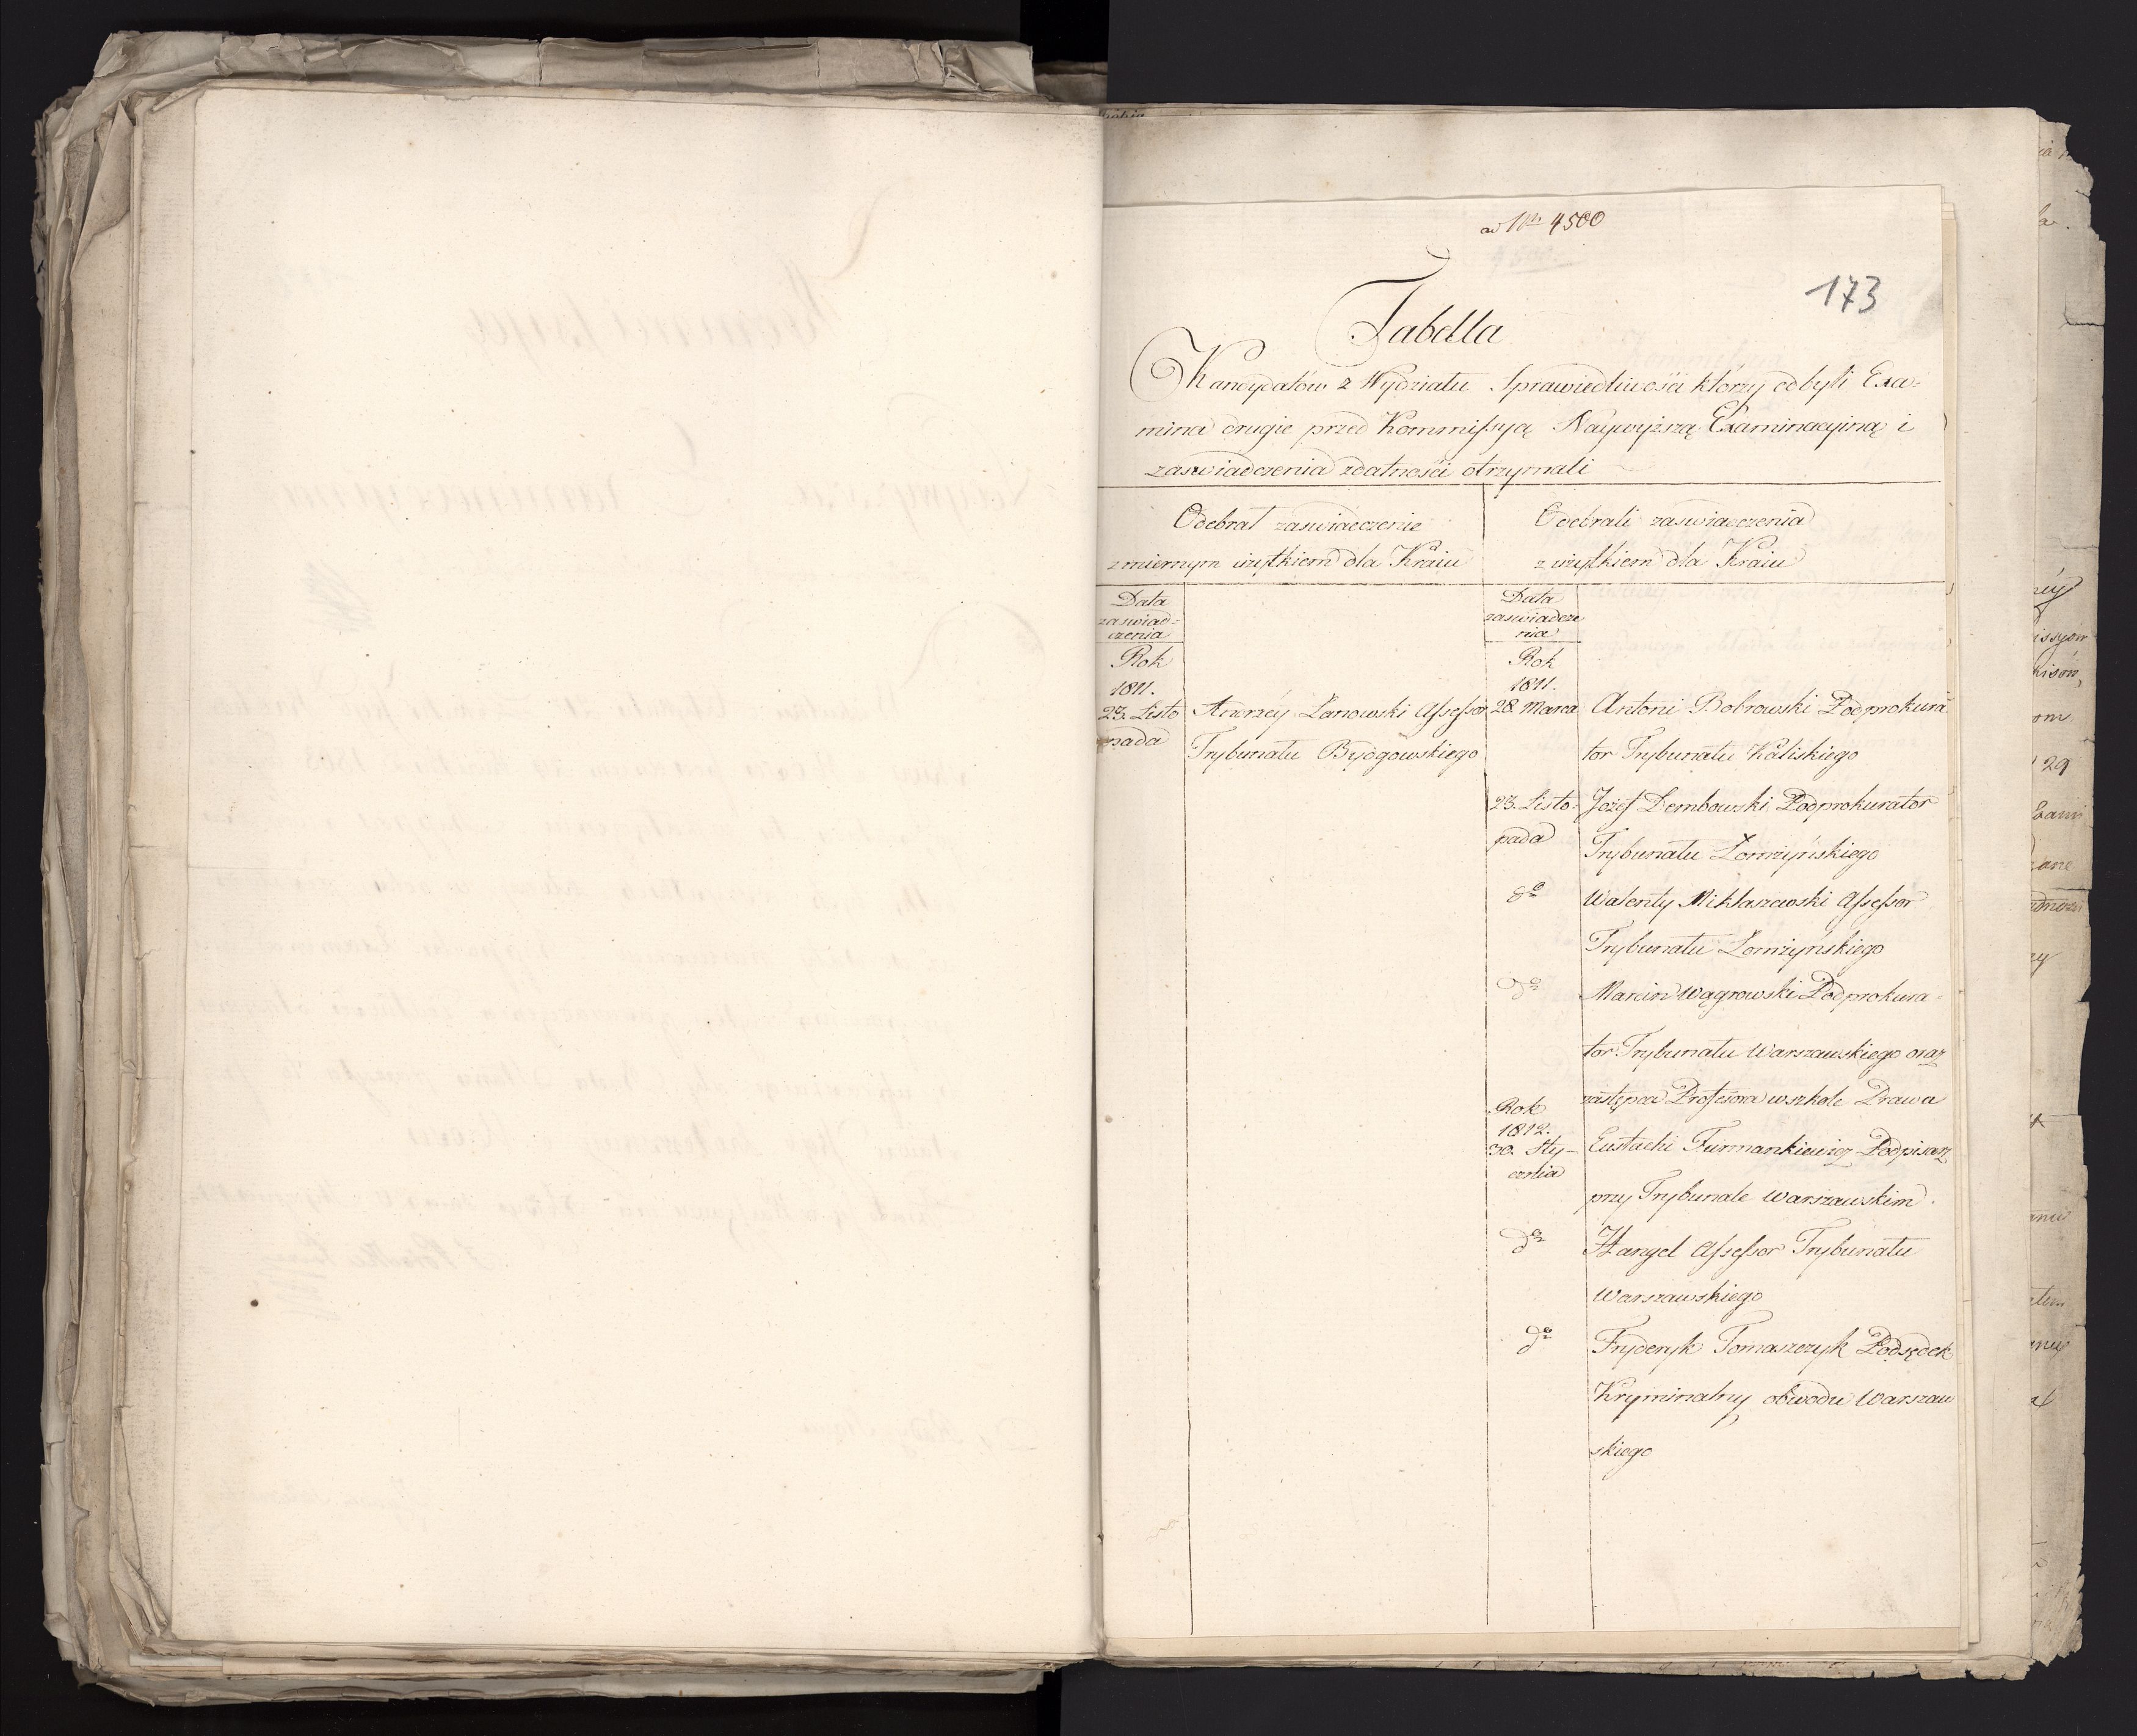 ad Nrm 4500
173
Tabella
Kandydatów z Wydziału Sprawiedliwości którzy odbyli Exa-
mina drugie przed Kommissyą Naywyższą Examinacyiną i
zaswiadczenia zdatności otrzymali
Odebrał zaswiadczenie
z miernym użytkiem dla Kraiu
Odebrali zaswiadczenia
z użytkiem dla Kraiu
Data
zaswiad-
czenia
Rok
1811.
23. Listo
pada
Andrzéy Łanowski Assessor
Trybunału Bydgowskiego
Data
zaswiadcze
nia
Rok
1811.
28. Marca
Antoni Bobrowski Podprokura
tor Trybunału Kaliskiego
23. Listo-
pada
Jozef Dembowski Podprokurator
Trybunału Łomżyńskiego
do
Walenty Mikłaszewski Assessor
Trybunału Łomżyńskiego
do
Marcin Wągrowski Podprokura-
tor Trybunału Warszawskiego oraz
zastępca Profesora w szkole Prawa
Rok
1812.
30. Sty-
cznia
Eustachi Furmankiewicz Podpisarz
przy Trybunale Warszawskim.
do
Hangel Assessor Trybunału
Warszawskiego
do
Fryderyk Tomaszczyk Podsędek
Kryminalny obwodu Warszaw
skiego